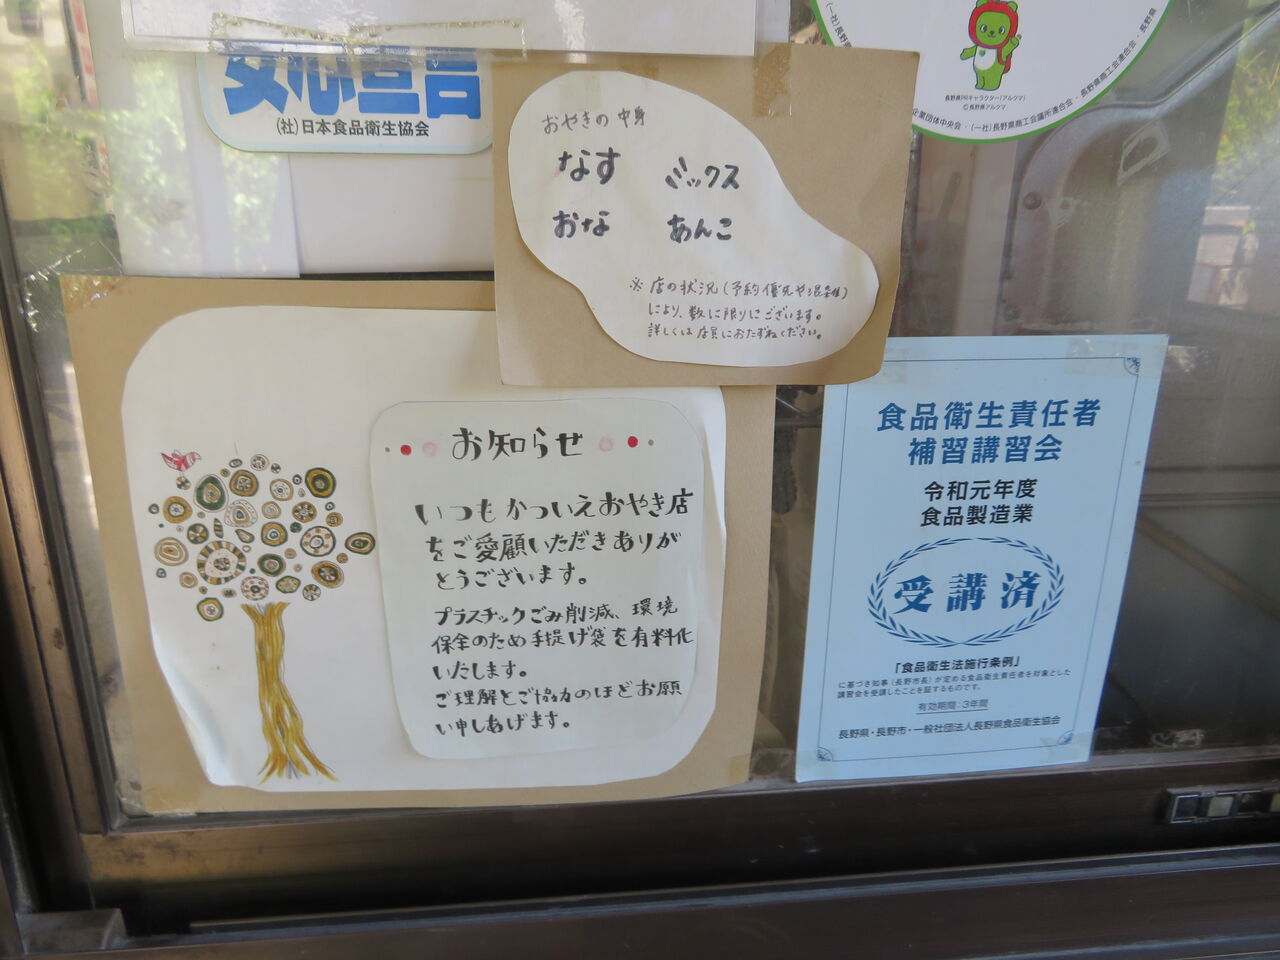 安心宣言
(社)日本食品衛生協会
長野県PRキャラクター「アルクマ」
©長野県アルクマ
おやきの中身
なす ミックス
おな あんこ
※店の状況(予約優先や混雑)
により、数に限りにございます。
詳しくは店員におたずねください。
お知らせ
いつもかついえおやき店
をご愛顧いただきありが
とうございます。
プラスチックごみ削減、環境
保全のため手提げ袋を有料化
いたします。
ご理解とご協力のほどお願
い申しあげます。
食品衛生責任者
補習講習会
令和元年度
食品製造業
受講済
「食品衛生法施行条例」
に基づき知事(長野市長)が定める食品衛生責任者を対象とした
講習会を受講したことを証するものです。
有効期間:3年間
長野県・長野市・一般社団法人長野県食品衛生協会